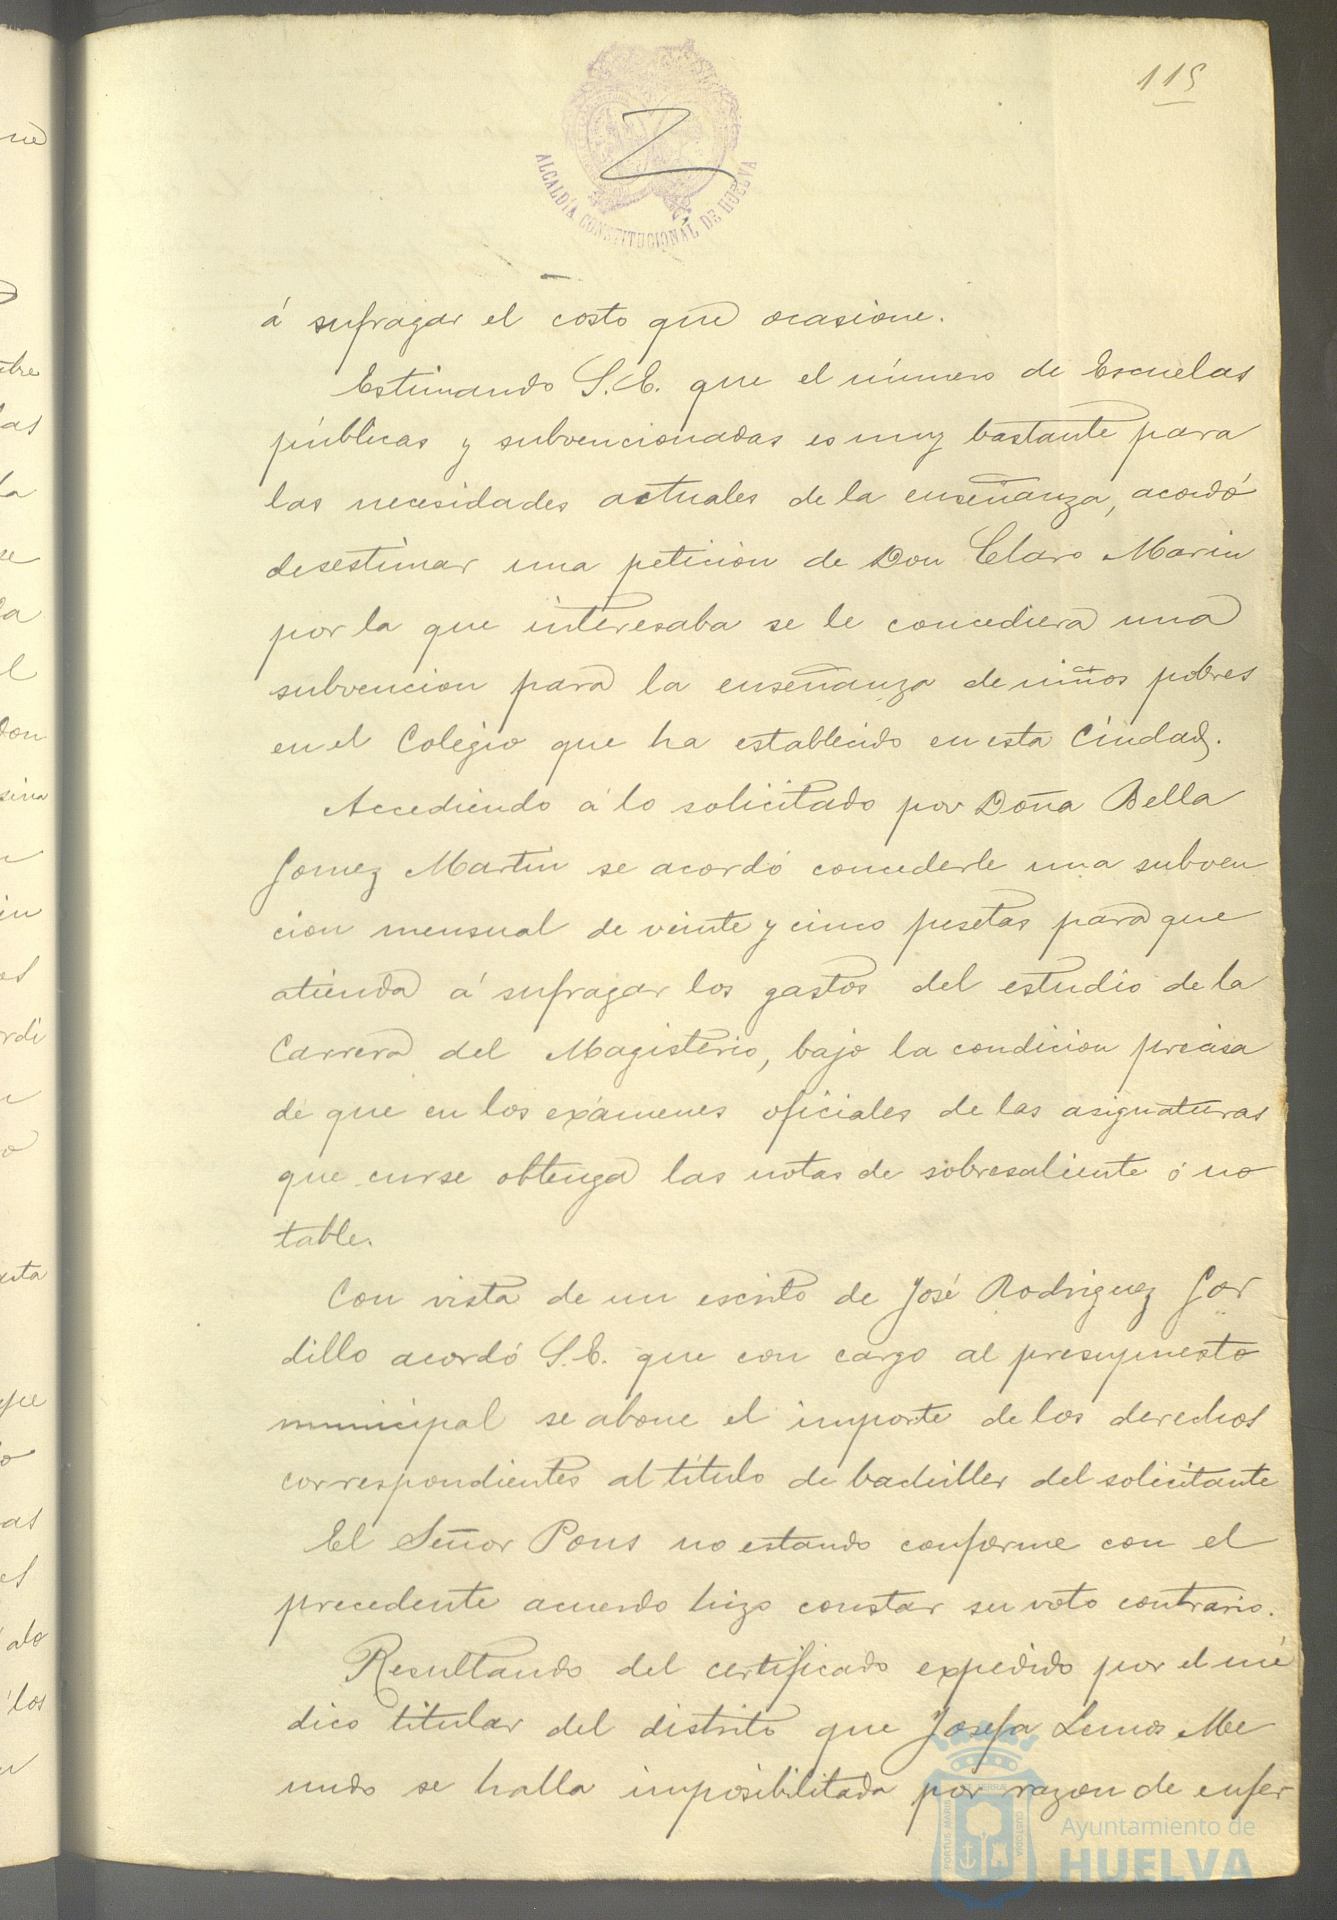 115
ALCALDÍA CONSTITUCIONAL DE HUELVA
á sufragar el costo que ocasione.
Estimando S.E. que el número de Escuelas
públicas y subvencionadas es muy bastante para
las necesidades actuales de la enseñanza, acordó
desestimar una petición de Don Claro Marin
por la que interesaba se le concediera una
subvencion para la enseñanza de niños pobres
en el Colegio que ha establecido en esta Ciudad.
Accediendo á lo solicitado por Doña Bella
Gomez Martin se acordó concederle una subven
cion mensual de veinte y cinco pesetas para que
atienda á sufragar los gastos del estudio de la
Carrera del Magisterio, bajo la condicion precisa
de que en los exámenes oficiales de las asignaturas
que curse obtenga las notas de sobresaliente ó no
table.
Con vista de un escrito de José Rodriguez Gor
dillo acordó S.E. que con cargo al presupuesto
municipal se abone el importe de los derechos
correspondientes al título de bachiller del solicitante
El Señor Pons no estando conforme con el
precedente acuerdo hizo constar su voto contrario.
Resultando del certificado expedido por el mé
dico titular del distrito que Josefa Lemos Me
nudo se halla imposibilitada por razon de enfer
Ayuntamiento de
HUELVA